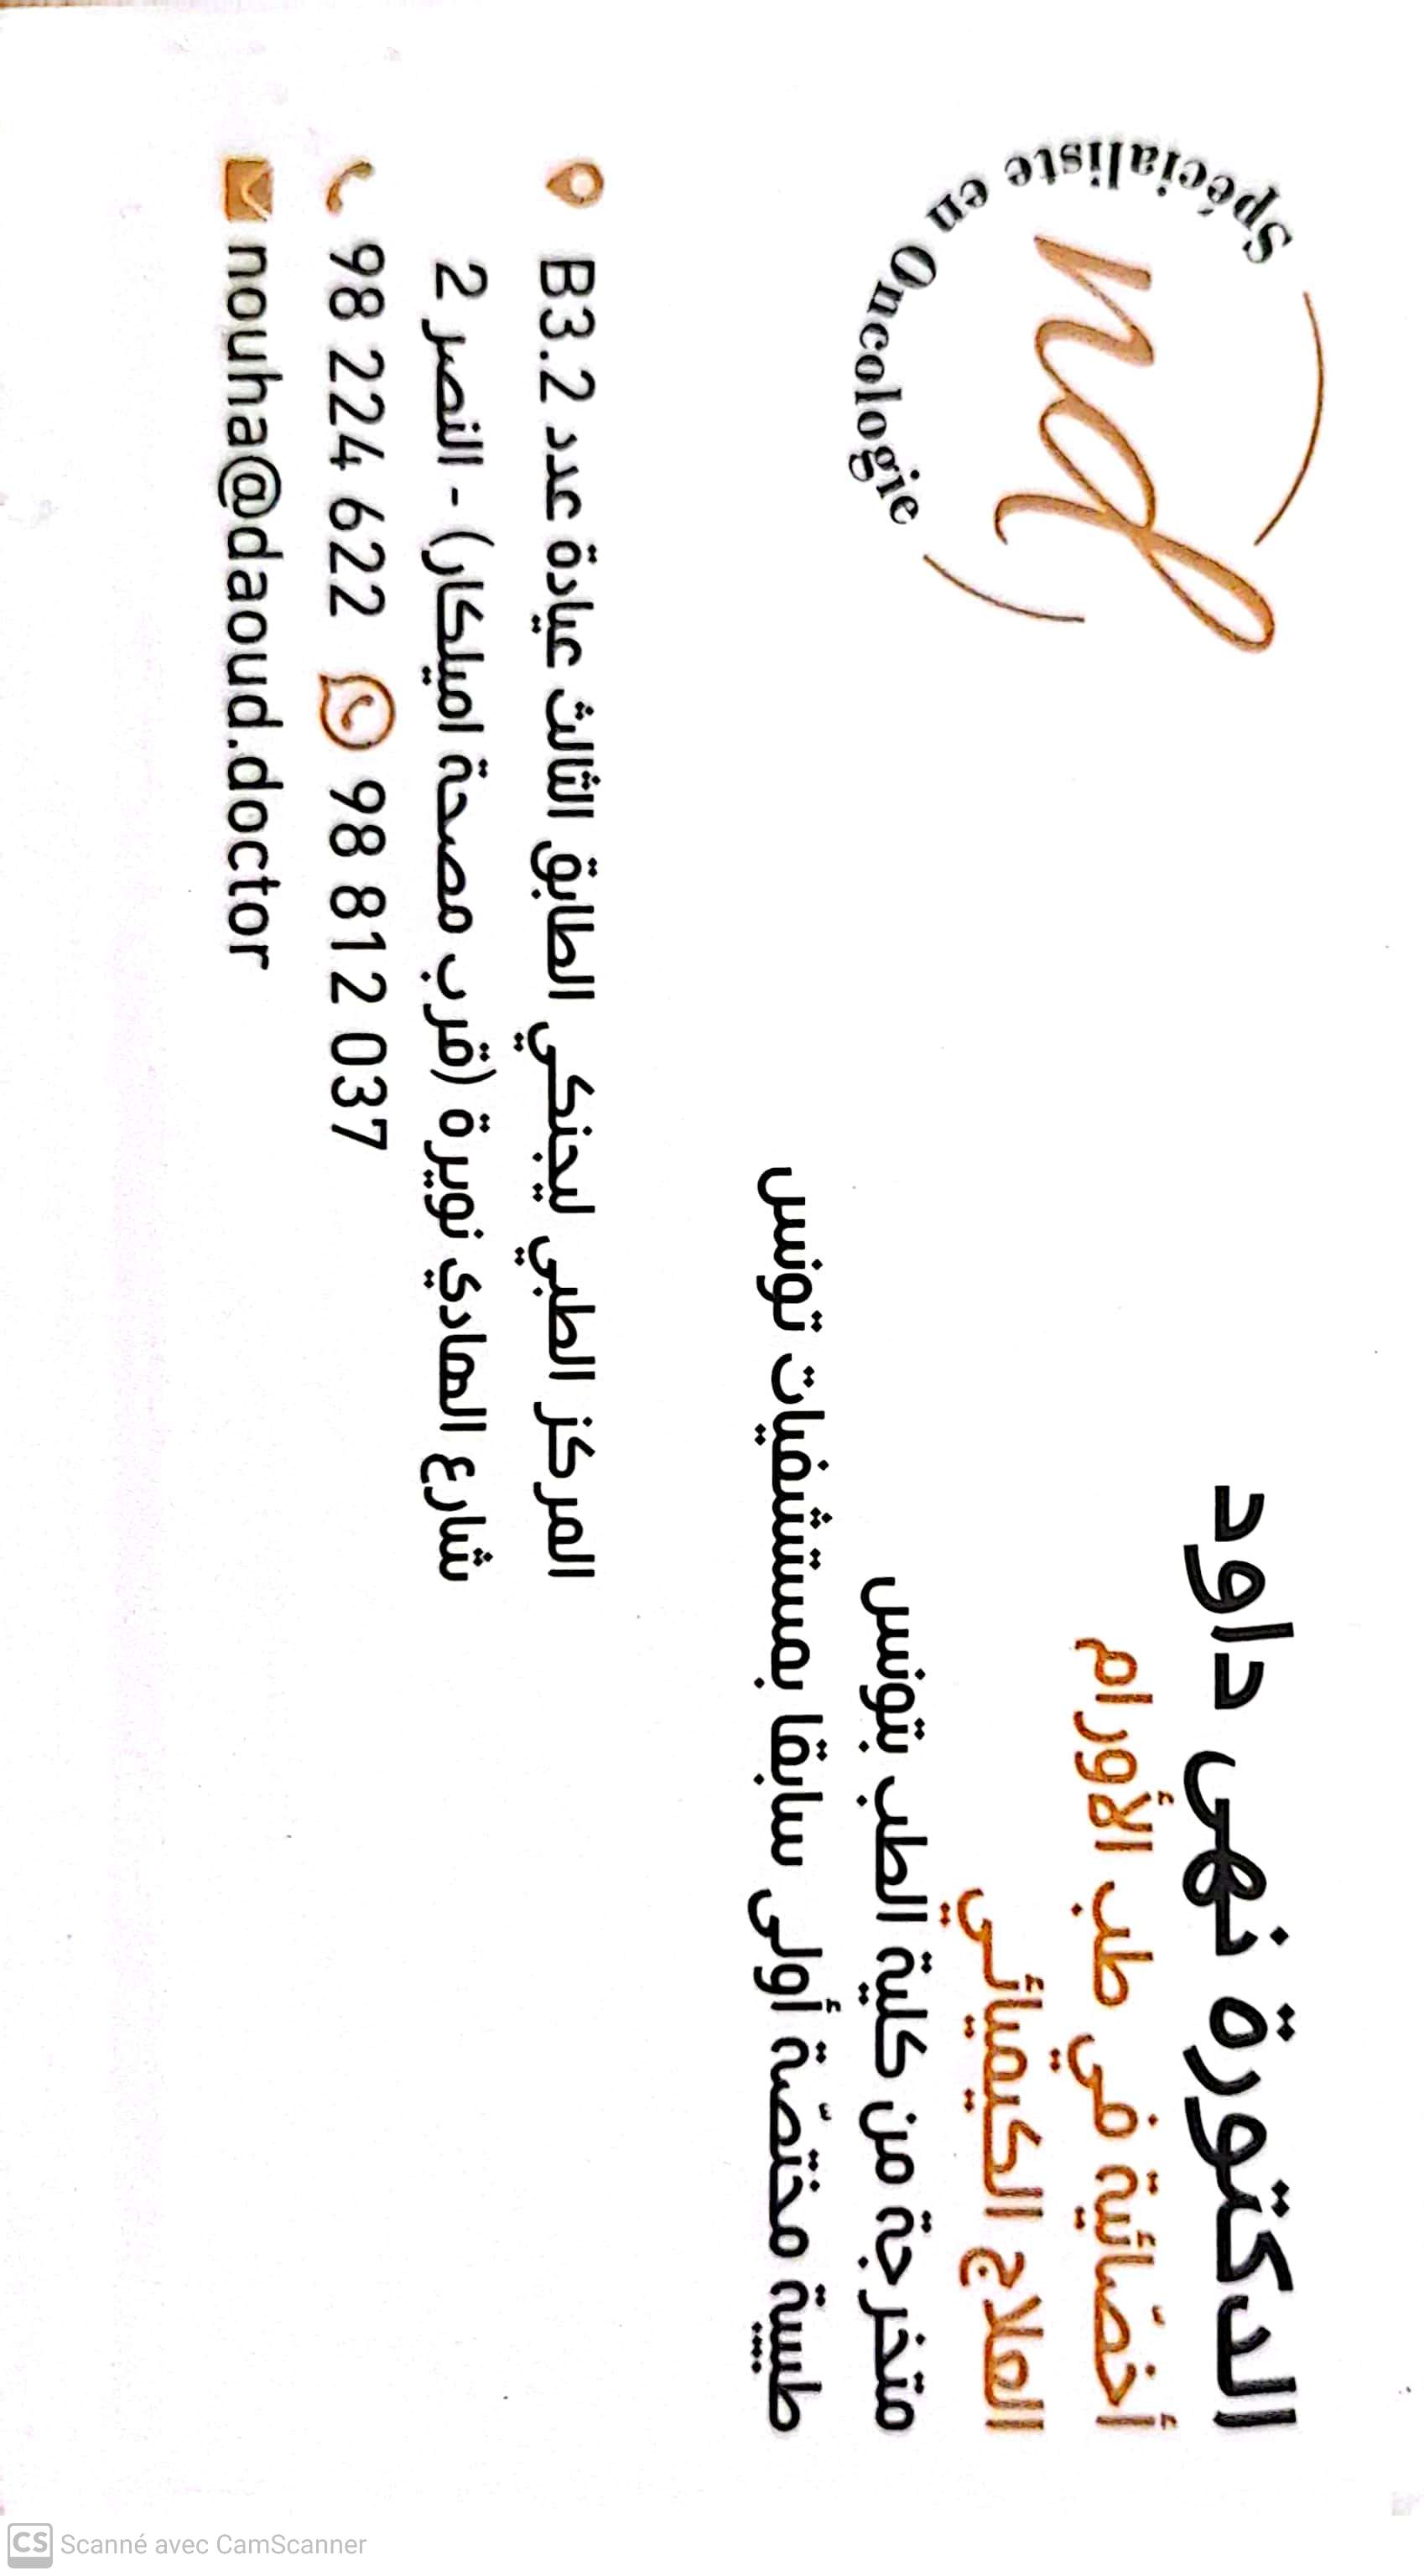 Spécialiste en Oncologie
nd
الدكتورة نهى داود
أخصّائية في طب الأورام
العلاج الكيميائي
متخرجة من كلية الطب بتونس
طبيبة مختصّة أولى سابقا بمستشفيات تونس
المركز الطبي ليجنكي الطابق الثالث عيادة عدد B3.2
شارع الهادي نويرة (قرب مصحة اميلكار) - النصر 2
98 224 622 98 812 037
nouha@daoud.doctor
CS Scanné avec CamScanner